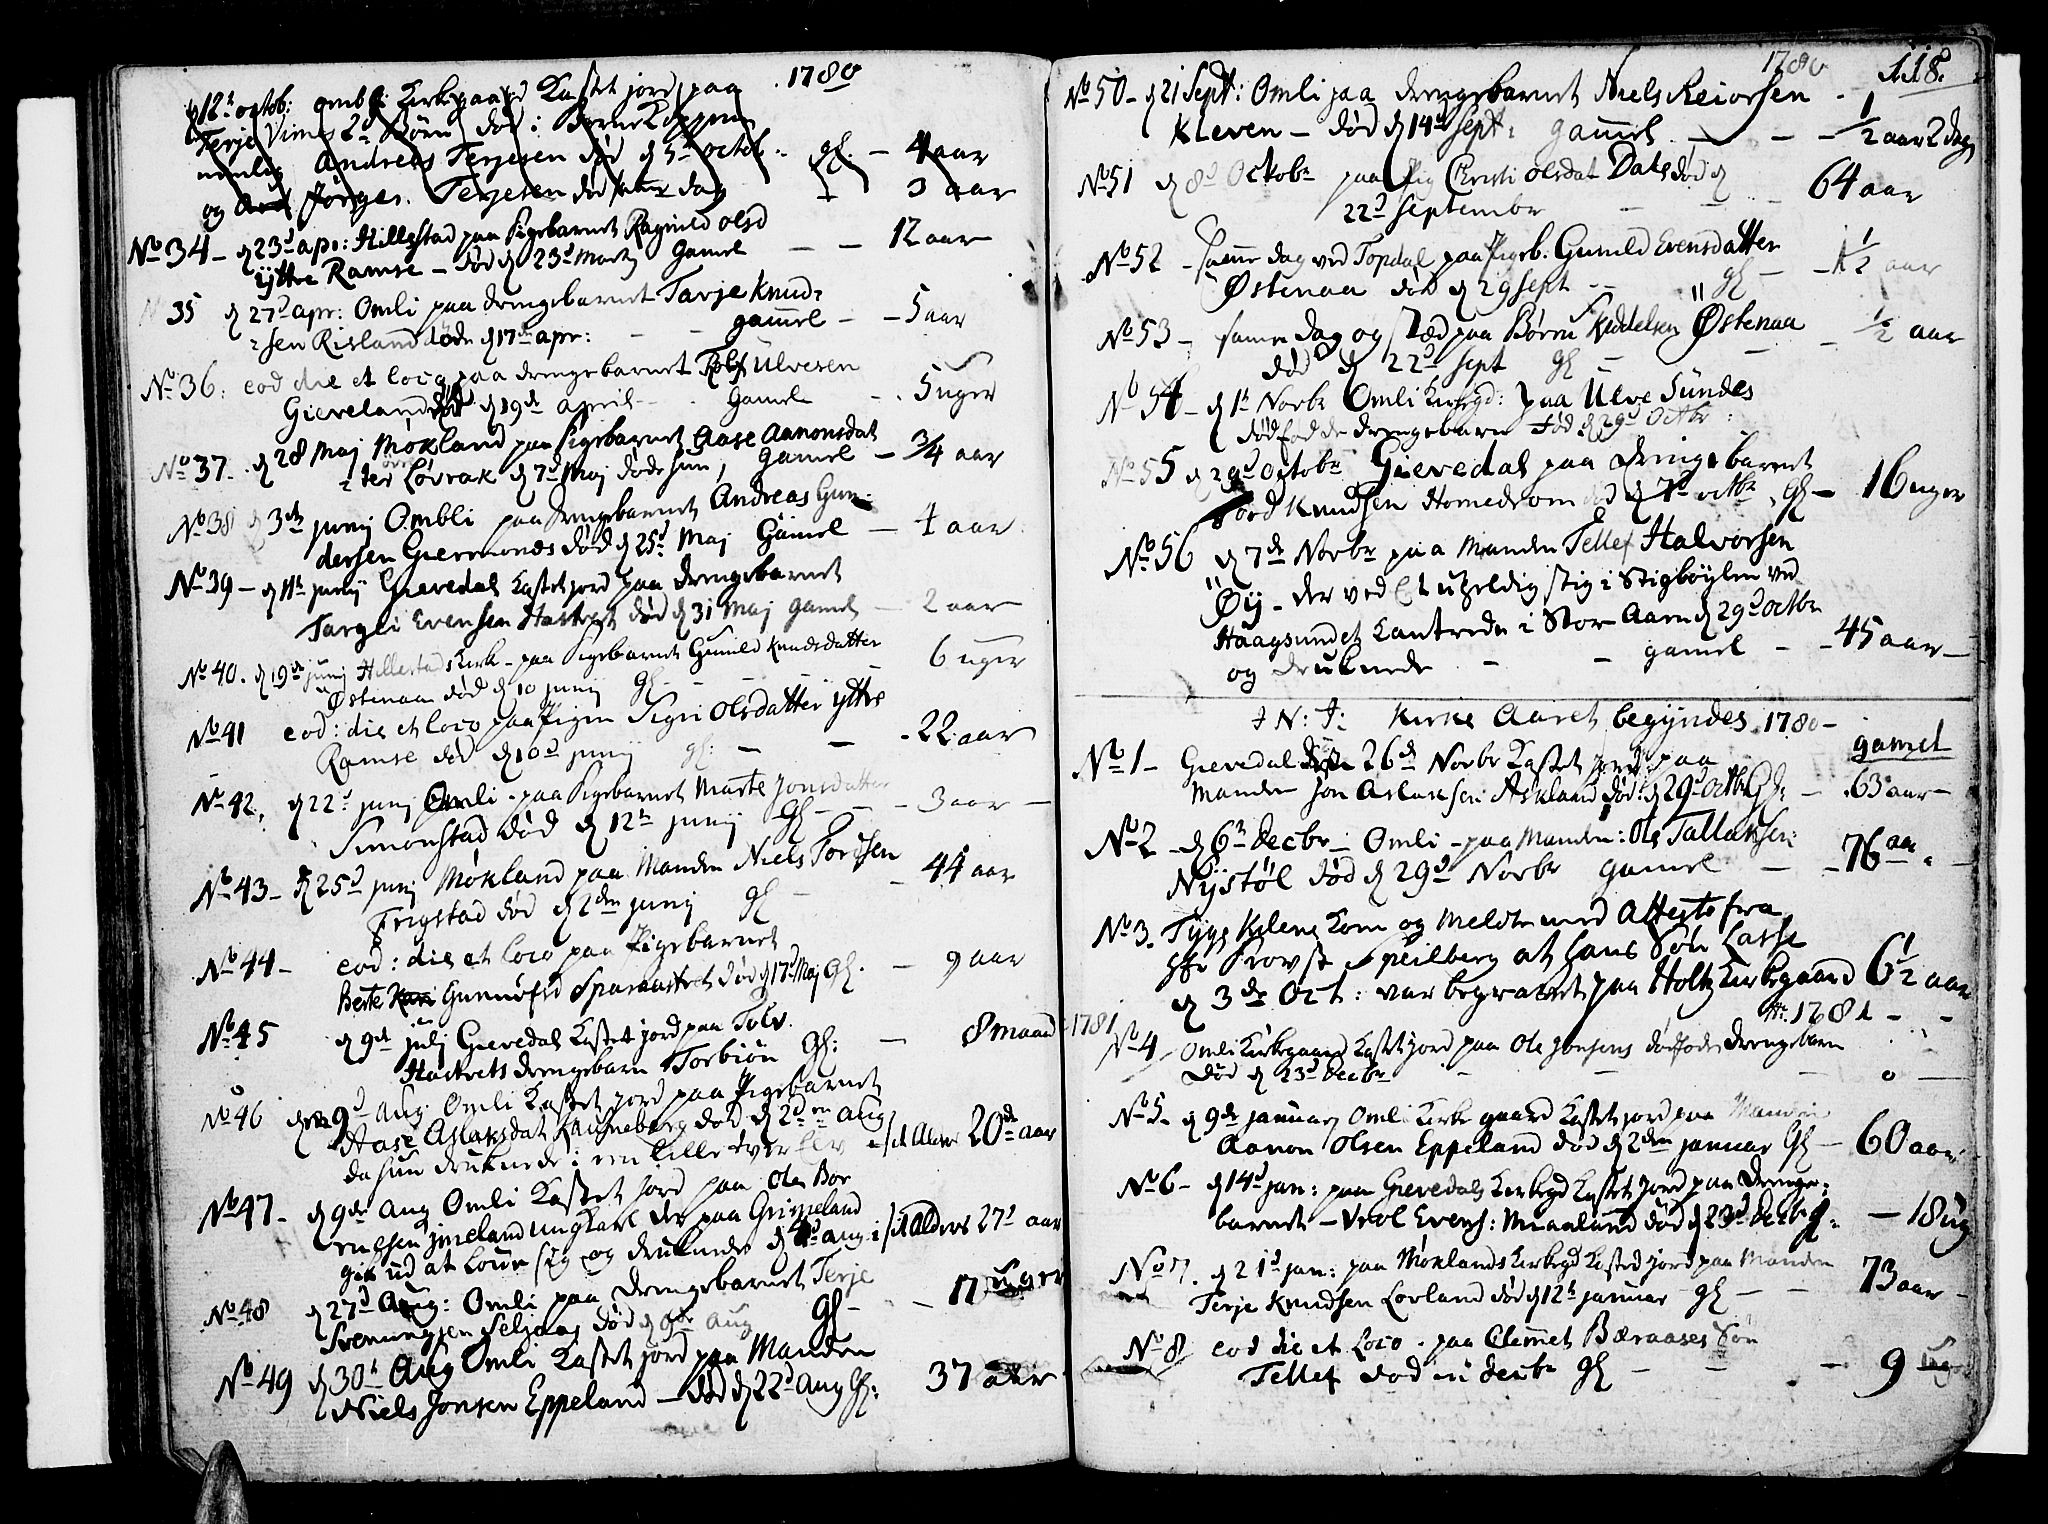 1780
d 12t octob: ombli Kirkegaard Kastet jord paa
Terje Vimes 2d Børn død i BørneKopperne
nemlig Andreas Terjesen død d 5t octob: gl. — 4 aar
og Jørges. Terjesen død samme dag 3 aar
No 34 — d 23d apr: Hillestad paa Pigebarnet Ragnild olsd
ÿttre Ramse — død d 23d Martj Gamel — — 12 aar
35 d 27d apr: Omli paa drengebarnet Tarje Knud-
-sen Risland døde d 17de apr: — — gamel — — 5 aar
No 36. eod die et loco paa drengebarnet Rolf Ulvesen
Gieveland død d 19de april — . Gamel — . 5 uger
No 37. d 28 Maj Møkland paa Pigebarnet Aase Aanonsdat
-ter Løvrak d 7d Maj døde hun, Gamel — 3/4 aar
No 38 d 3de junij Ombli paa drengebarnet Andreas Gun-
dersen Giermonds død d 25d Maj Gamel — 4 aar
No 39 — d 11t junij Gievedal Kastet jord paa drengebarnet
Targli Evensen død d 31 Maj gamel — 2 aar
No 40. d 19de junij Hillestad Kirk — paa Pigebarnet Gunild Knudsdatter
Østenaa død d 10 junij gl. — — — 6 uger
No 41 eod: die et loco paa Pigen Sigri olsdatter ÿttre
Ramse død d 10d junij gl: — — . 22 aar
No 42, d 22d junj Omli — paa Pigebarnet Marte Jonsdatter
Simonstad død d 12t junij Gl — — — 3 aar —
No 43 — d 25d junj Møkland paa Manden Niels Tordsen
Frigstad død d 2den junij gl — — 44 aar
No 44 — eod: die et loco paa Pigebarnet
Berte Gunnufsd død d 17d Maj Gl. — 9 aar
No 45 d 9de julj Gievedal Kastet jord paa Tolv.
Hastvets drengebarn Torbiøn Gl: — 8 maand
No 46 d 9d Aug Omli Kastet jord paa Pigebarnet
Aase Aslaksdat død d 2den aug
da hun druknede i en lille tver Elv i sit Alders 20de aar
No 47 — d 9de Aug Omli Kastet jord paa Ole Bor
nielsen jmeland ungkarl der paa Grimeland
gik ud at loue sig og druknede d 4d aug i sit Alders 27d aar
No 48 d 27d Aug: Omli paa drengebarnet Terje
Svenungsen Seljaas død d 9de Aug Gl — — 17 uger
No 49 d 30t Aug Omli Kastet jord paa Manden
Niels Jonsen Eppeland — død d 22d Aug Gl: 37 aar
1780 118.
No 50 — d 21 Sept: Omli paa drengebarnet Niels Reiorsen
Kleven — død d 14d Sept: gamel — — — 1/2 aar 2 dag
No 51 d 8d Octobr paa Pig Christi olsdat Dals død d
22d Septembr — — — 64 aar
No 52 — samme dag ved Topdal paa Pigeb. Gunild Evensdatter
Østenaa død d 29 sept — gl — — 1 1/2 aar
No 53 — samme dag og Sted paa Børre Keddelsen Østenaa
død d 22d sept gl — — — 1/2 aar
No 54 — d 1t Novbr Omli Kirkegd: paa Ulve Sundes
dødfødde drengebarn Fød d 29d Octbr:
No 55 d 29d octobr Gievedal paa drengebarnet
Tord Knudsen Homedrom død d 7d octbr, Gl — 16 uger
No 56 d 7de Novbr paa Manden Tellef Halvorsen
Øij — der ved Et uheldig stig i Stigbøylen ved
Haagsundet Kantrede i Stor Aaen d 29d octbr
og druknede — — gamel — — 45 aar —
I N: J: Kirke Aaret begÿndes 1780 —
gamel
No 1 — Gievedal 26d Novbr Kastet jord paa
Manden Jon Aslaksen Askland død: d 29d octbr Gl: — . 63 aar
No 2 — d 6t decbr — Omli — paa Manden: Ole Tallaksen:
Nÿstøl død d 29d Novbr gamel — — 76 aar.
No 3. Tÿge Kilene kom og meldte med Attest fra
Hr Provst Speilberg at hans Søn Lasse
d 3de Oct: var begravet paa Holtz Kirkegaard 6 1/2 aar
1781 Ao. 1781 — —
No 4 Omli Kirkegaard Kastet jord paa Ole Jonsens dødfødde drengebarn
død d 23d decbr — — — 0 —
No 5. d 9de januarj Omli Kirke gaard Kastet jord paa Manden
Aanon Olsen Eppeland død d 2den januar Gl — 60 aar
No 6 — d 14d jan: paa Gievedals Kirkegd Kastet Jord paa drenge-
barnet — Evens: død d 23d decbr gl: — 18 ug
No 7. d 21d jan: paa Møklands Kirkegd Kasted jord paa Manden
Terje Knudsen Lovland død d 12t januar gl — — 73 aar —
No 8 eod die et Loco. paa Clemet Bæraases Søn
Tellef død in decbr gl — — — 9 uger